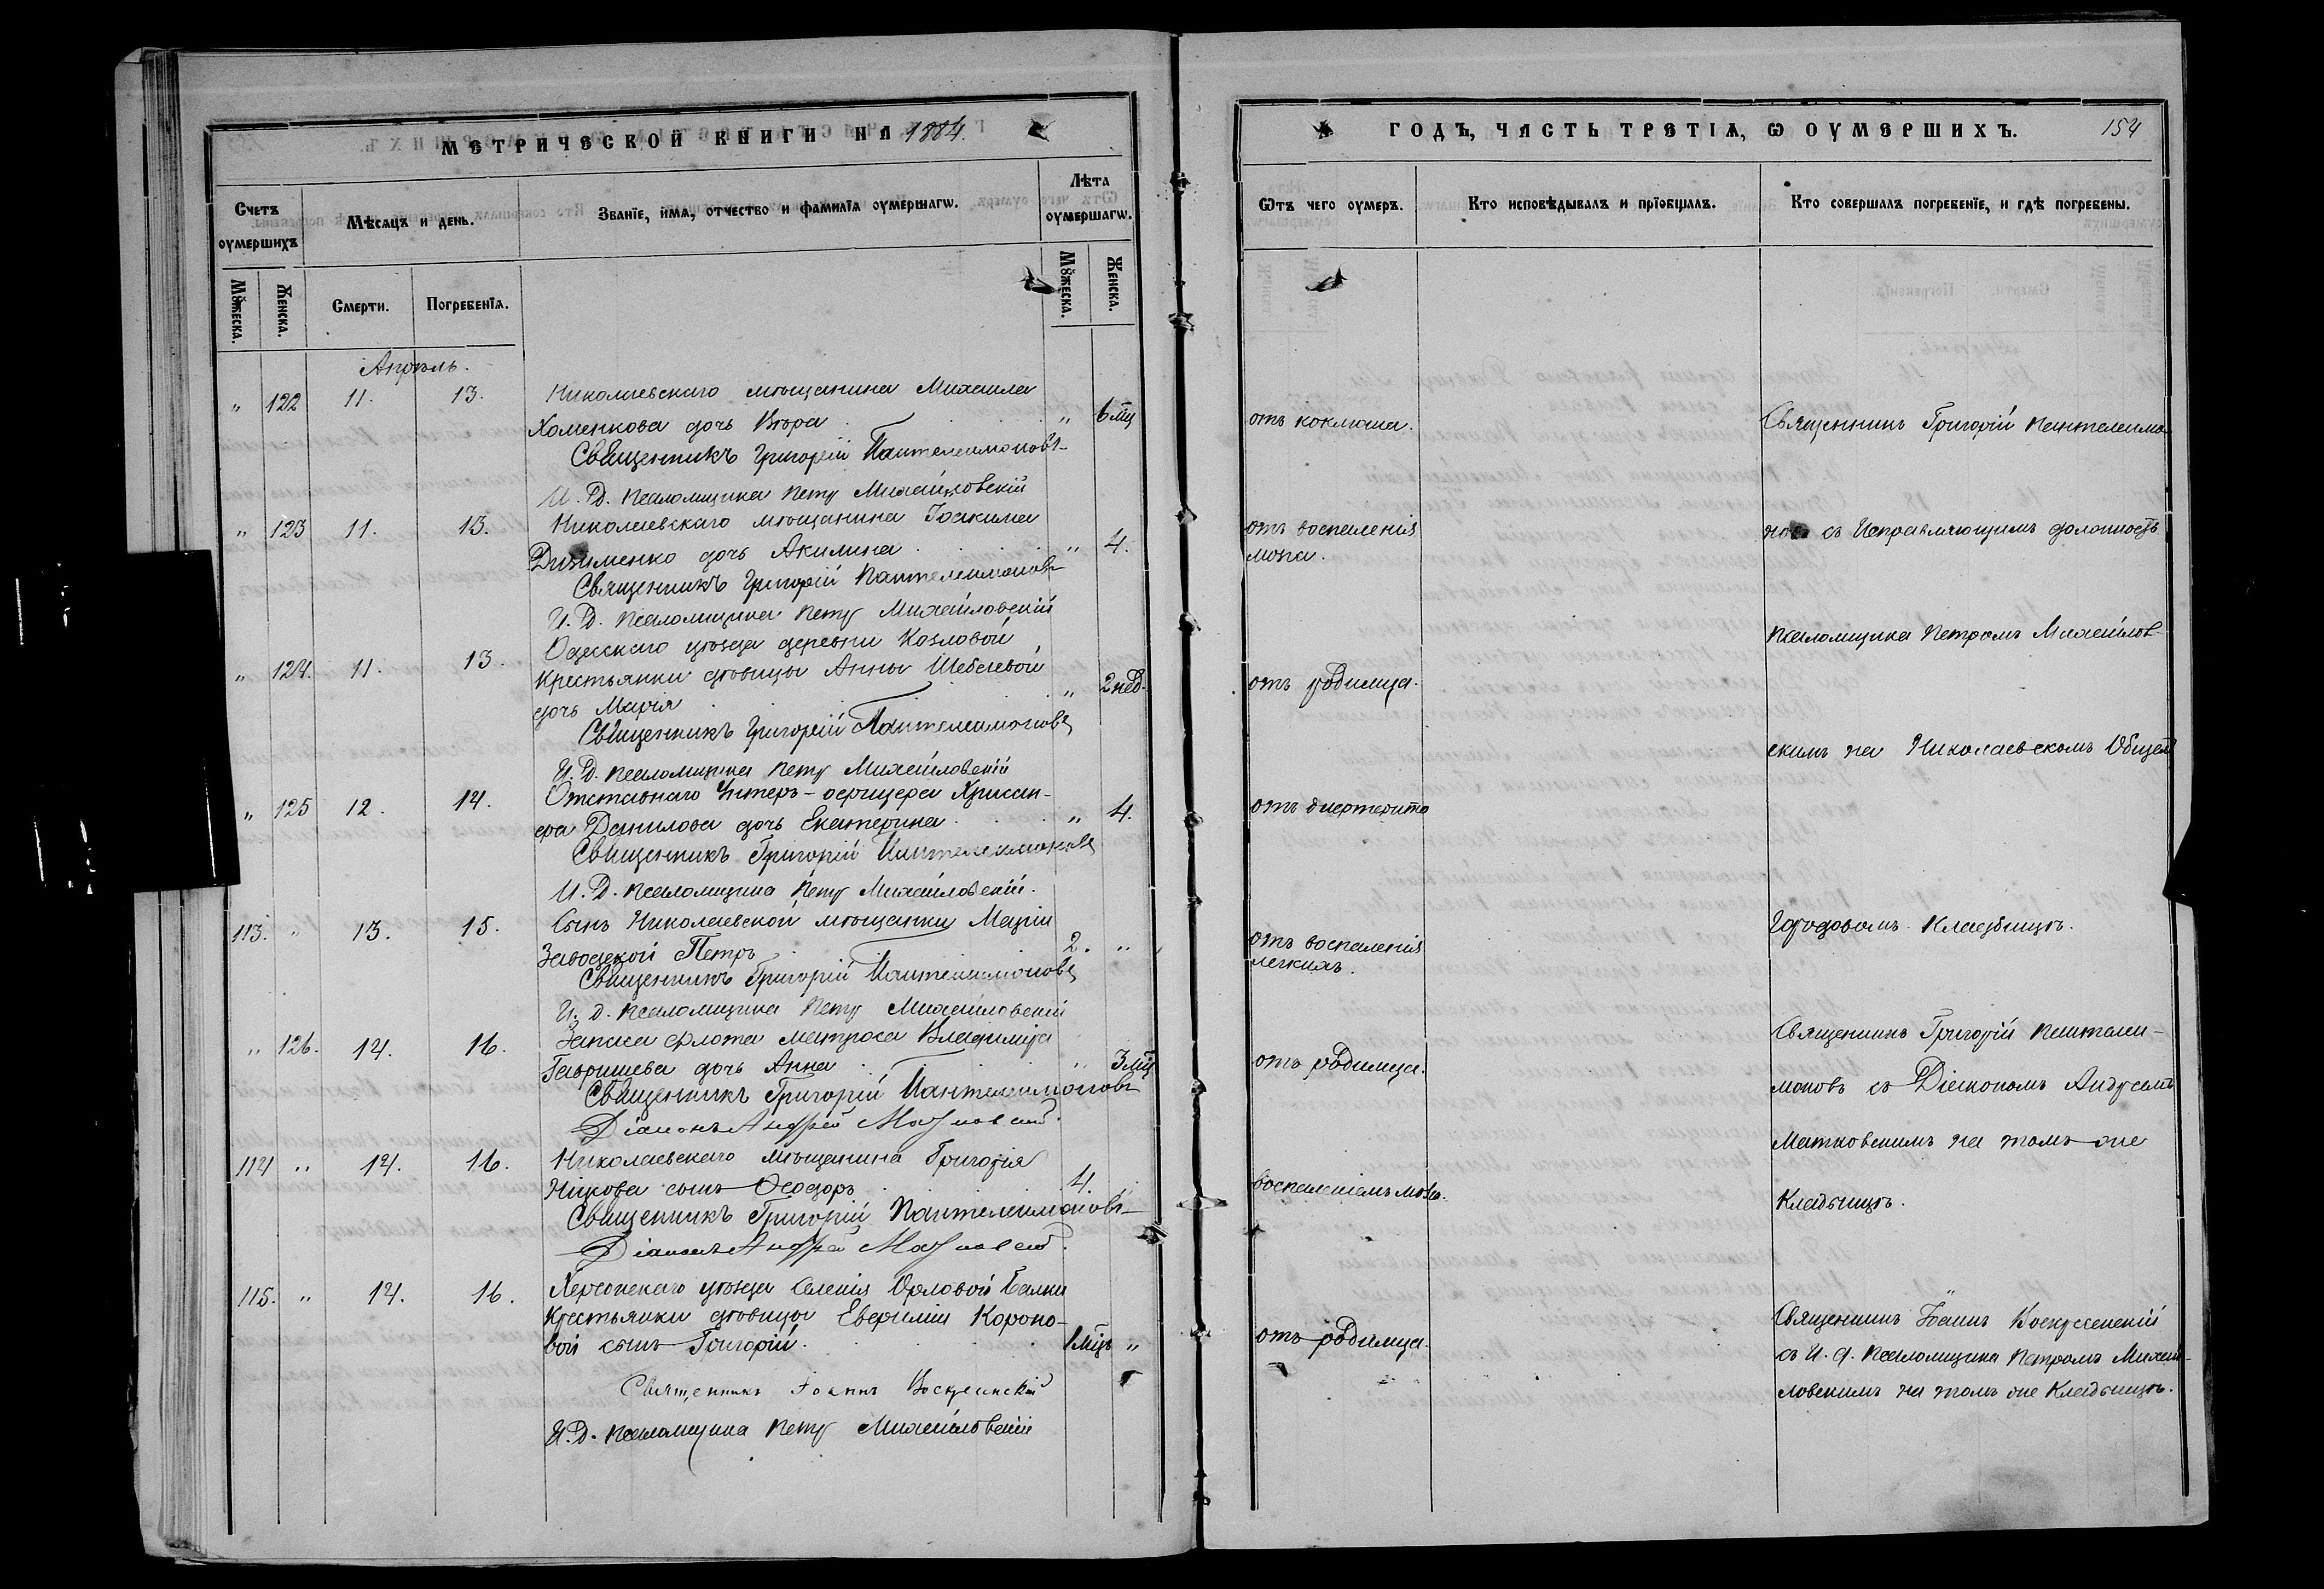 МЕТРИЧЕСКОЙ КНИГИ НА 1884.
Счетъ оумершихъ
Мѣсяцъ и день.
Званіе, имя, отчество и фамилія оумершагѡ.
Лѣта оумершагѡ.
Мꙋжеска.
Женска.
Смерти.
Погребенія.
Мꙋжеска.
Женска.
Апрѣль.
" 122 11. 13. Николаевскаго мѣщанина Михаила
Хоменкова дочь Вѣра " 6 мц
Священникъ Григорій Пантелеимоновъ
И. Д. псаломщика Петръ Михайловскій
" 123 11. 13. Николаевскаго мѣщанина Іоакима
дочь Акилина " 4.
Священникъ Григорій Пантелеимоновъ
И. Д. псаломщика Петръ Михайловскій
" 124. 11. 13. Одесскаго уѣзда деревни Козловой
крестьянки дѣвицы Анны Шебелевой
дочь Марія " 2 нед.
Священникъ Григорій Пантелеимоновъ
И. Д. псаломщика Петръ Михайловскій
" 125 12. 14. Отставнаго Унтеръ-офицера Хрисан-
фа Данилова дочь Екатерина " 4.
Священникъ Григорій Пантелеимоновъ
И. Д. псаломщика Петръ Михайловскій.
113. " 13. 15. Сынъ Николаевской мѣщанки Маріи
Завадской Петръ 2. "
Священникъ Григорій Пантелеимоновъ
И. д. псаломщика Петръ Михайловскій
" 126. 14. 16. Запаса флота матроса Владиміра
Гавришева дочь Анна " 3 мц
Священникъ Григорій Пантелеимоновъ
Діаконъ Андрей
114 " 14. 16. Николаевскаго мѣщанина Григорія
сынъ Ѳеодоръ 4.
Священникъ Григорій Пантелеимоновъ
Діаконъ Андрей
115. " 14. 16. Херсонскаго уѣзда селенія Орловой Балки
крестьянки дѣвицы Евфиміи Короно-
вой сынъ Григорій. 1 мцъ "
Священникъ Іоаннъ Воскресенскій
И. Д. псаломщика Петръ Михайловскій
ГОДЪ, ЧАСТЬ ТРЕТІЯ, Ѡ ОУМЕРШИХЪ. 154
Ѿтъ чего оумеръ.
Кто исповѣдывалъ и пріобщалъ.
Кто совершалъ погребеніе, и гдѣ погребены.
отъ коклюша.
Священникъ Григорій Пантелеимо-
отъ воспаленія
мозга.
новъ съ Исправляющимъ должность
псаломщика Петромъ Михайлов-
отъ родимца.
скимъ на Николаевскомъ Общемъ
отъ дифтерита
Городовомъ Кладбищѣ.
отъ воспаленія
легкихъ.
Священникъ Григорій Пантелеи-
отъ родимца.
моновъ съ Діакономъ Андреемъ
Матковскимъ на томъ же
воспаленіемъ мозга.
Кладбищѣ.
Священникъ Іоаннъ Воскресенскій
отъ родимца.
съ И. д. псаломщика Петромъ Михай-
ловскимъ на томъ же Кладбищѣ.